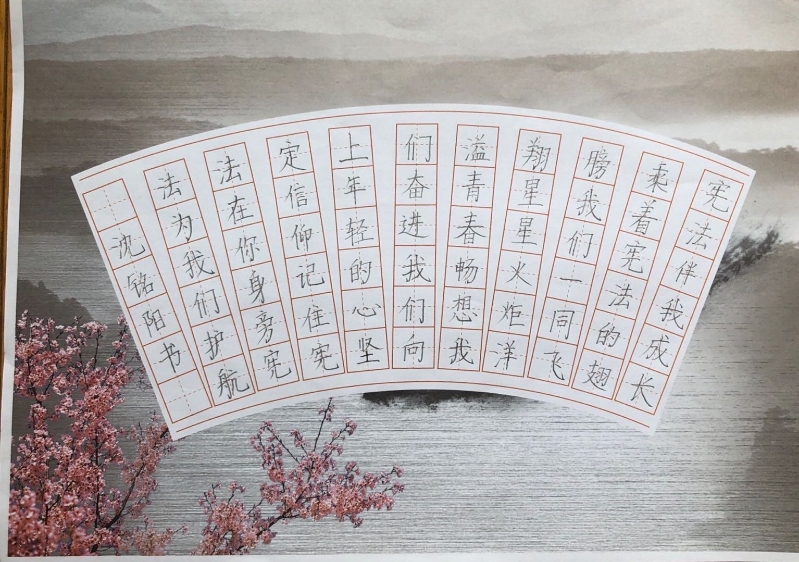 宪法伴我成长
乘着宪法的翅
膀我们一同飞
翔星星火炬洋
溢青春畅想我
们奋进我们向
上年轻的心坚
定信仰记住宪
法在你身旁宪
法为我们护航
沈铭阳书